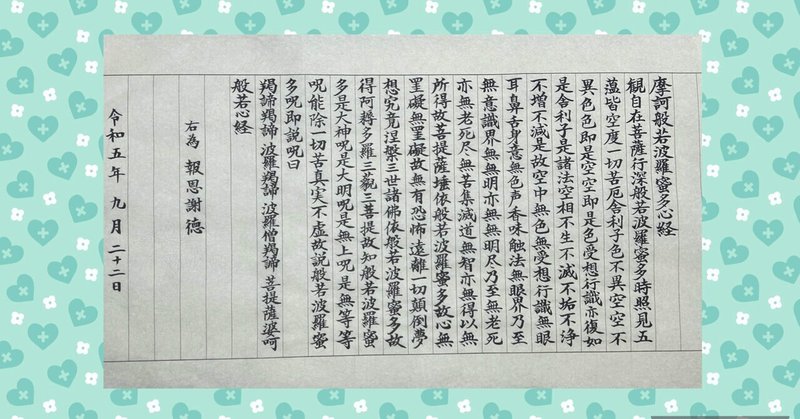 摩訶般若波羅蜜多心経
観自在菩薩行深般若波羅蜜多時照見五
蘊皆空度一切苦厄舎利子色不異空空不
異色色即是空空即是色受想行識亦復如
是舎利子是諸法空相不生不滅不垢不浄
不増不減是故空中無色無受想行識無眼
耳鼻舌身意無色声香味触法無眼界乃至
無意識界無無明亦無無明尽乃至無老死
亦無老死尽無苦集滅道無智亦無得以無
所得故菩提薩埵依般若波羅蜜多故心無
罣礙無罣礙故無有恐怖遠離一切顛倒夢
想究竟涅槃三世諸佛依般若波羅蜜多故
得阿耨多羅三藐三菩提故知般若波羅蜜
多是大神呪是大明呪是無上呪是無等等
呪能除一切苦真実不虚故説般若波羅蜜
多呪即説呪曰
羯諦羯諦 波羅羯諦 波羅僧羯諦 菩提薩婆呵
般若心経
右為 報恩謝徳
令和五年 九月 二十二日